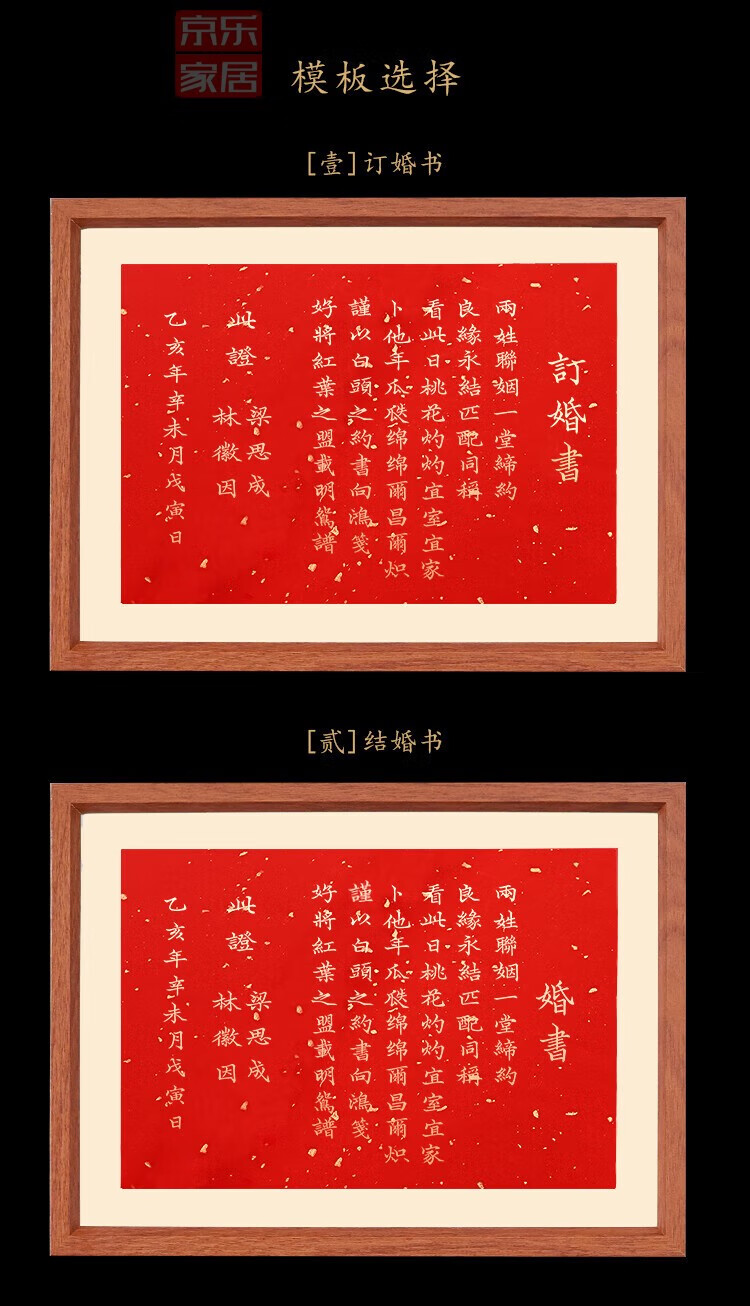 京乐
家居
模板选择
[壹]订婚书
訂婚書
兩姓聯姻一堂締約
良緣永結匹配同稱
看此日桃花灼灼宜室宜家
卜他年瓜瓞绵绵爾昌爾炽
謹以白頭之約書向鴻箋
好將紅葉之盟載明鴛譜
此證
梁思成
林徽因
乙亥年辛未月戊寅日
[贰]结婚书
婚書
兩姓聯姻一堂締約
良緣永結匹配同稱
看此日桃花灼灼宜室宜家
卜他年瓜瓞绵绵爾昌爾炽
謹以白頭之約書向鴻箋
好將紅葉之盟載明鴛譜
此證
梁思成
林徽因
乙亥年辛未月戊寅日